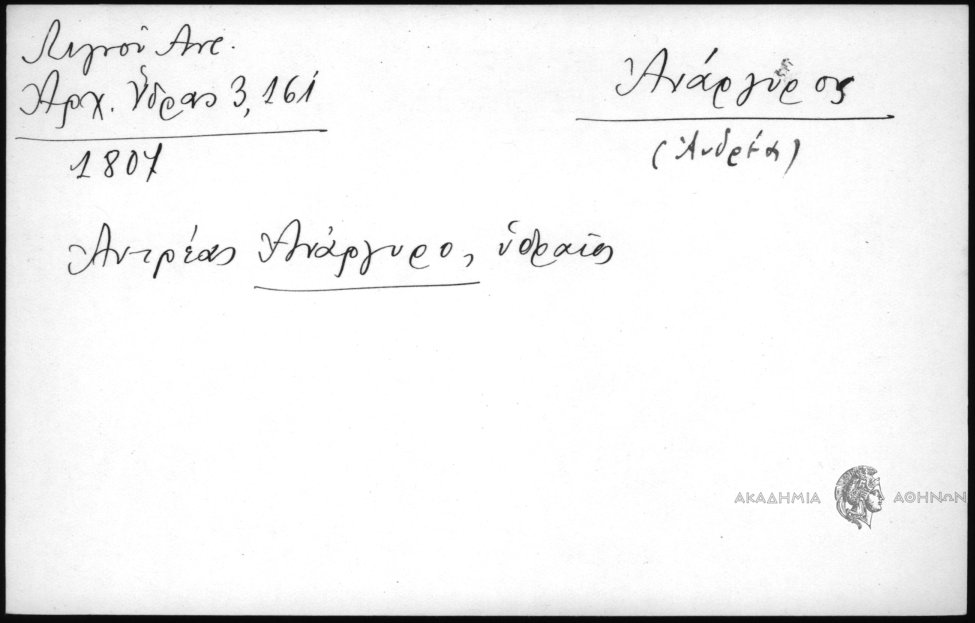 Λιγνοῦ Ἀντ.
Ἀρχ. Ὕδρας 3, 161
1807
Ἀνάργυρος
(Ἀνδρέα)
Ἀντρέας Ἀνάργυρο, ὑδραῖος
ΑΚΑΔΗΜΙΑ ΑΘΗΝΩΝ